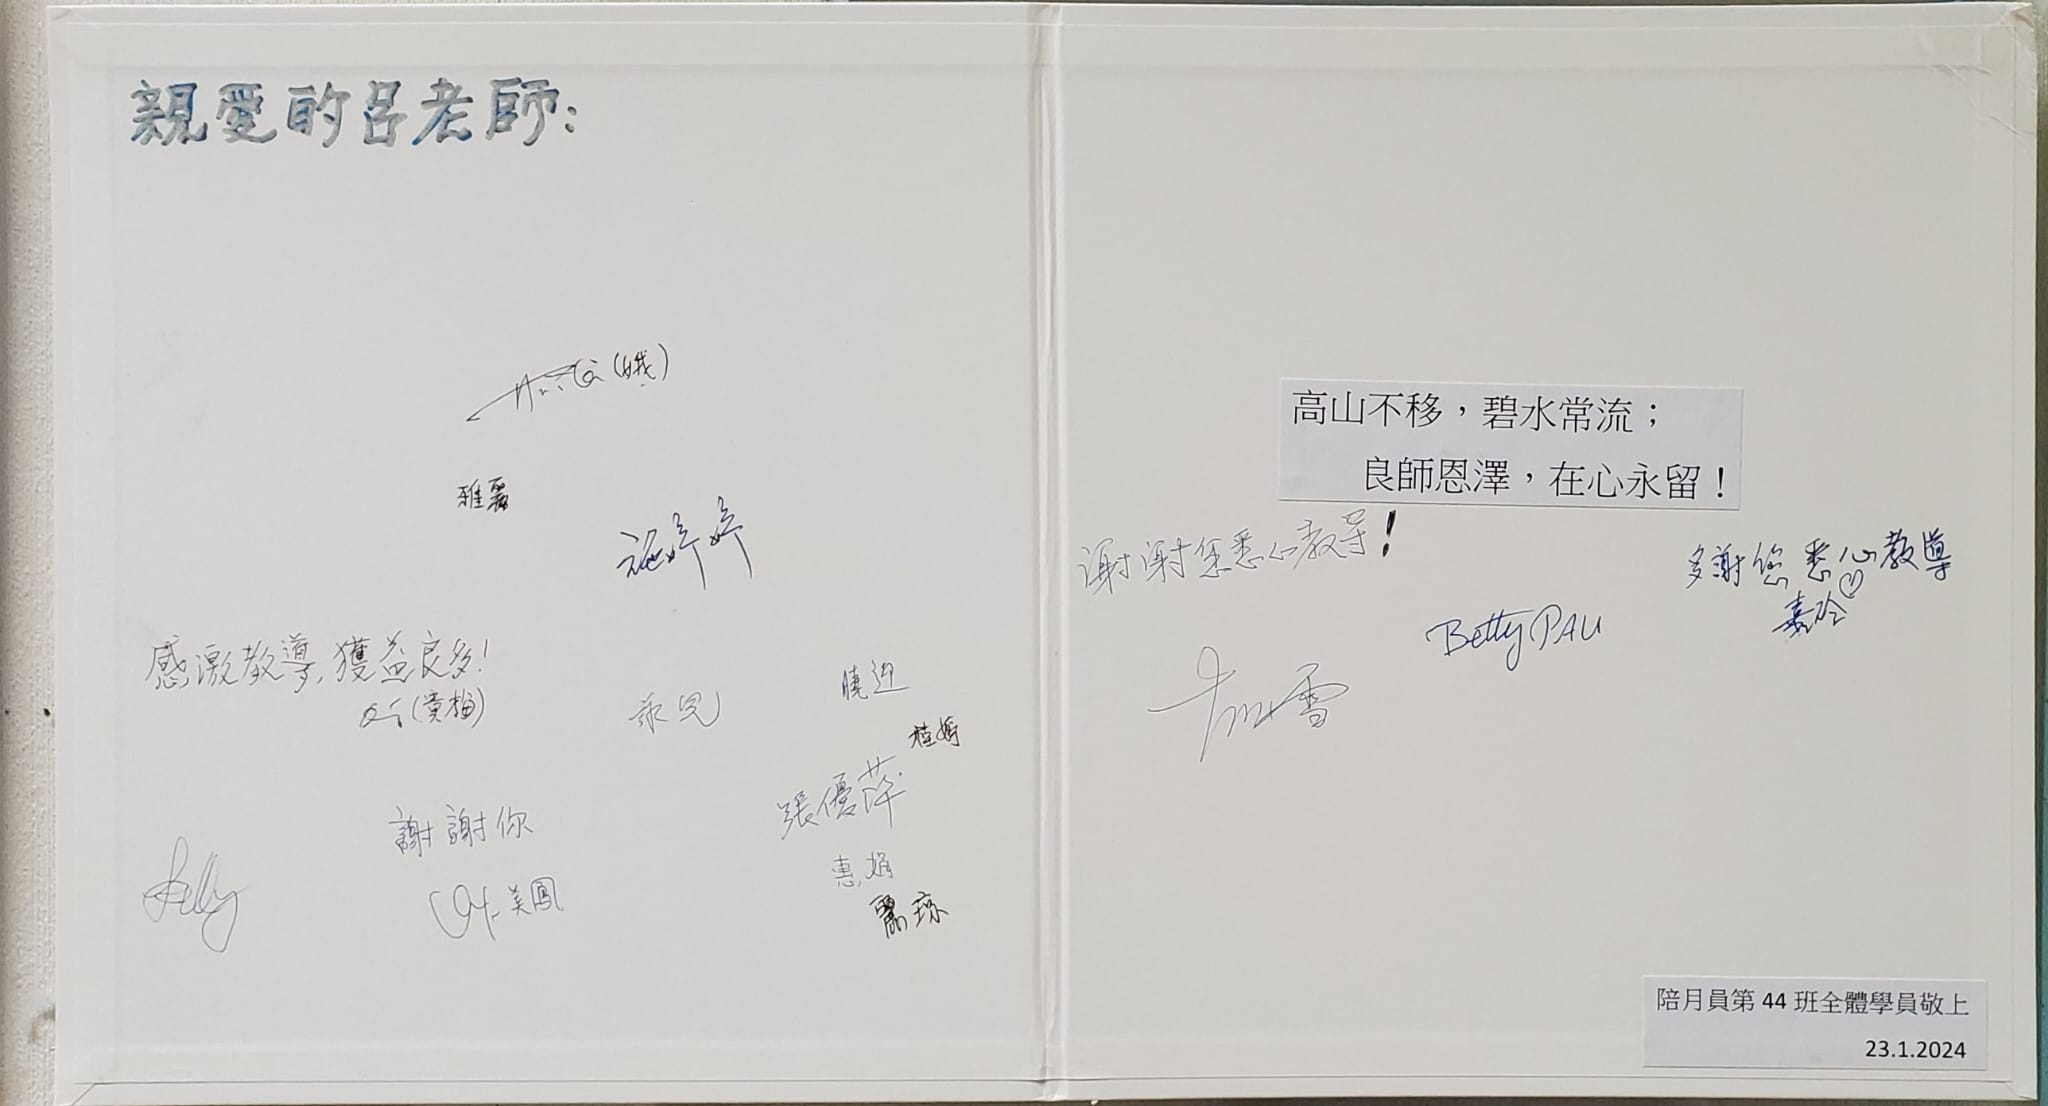 親愛的呂老師:
Anita (娥)
雅麗
施婷婷
感激教導,獲益良多!
(黃梅)
曉迎
桂嫦
張優萍
謝謝你
惠娟
Kelly
美鳳
麗琼
高山不移，碧水常流；
良師恩澤，在心永留！
谢谢您悉心教导!
多謝您悉心教導
嘉玲
Betty PAU
雪
陪月員第 44 班全體學員敬上
23.1.2024